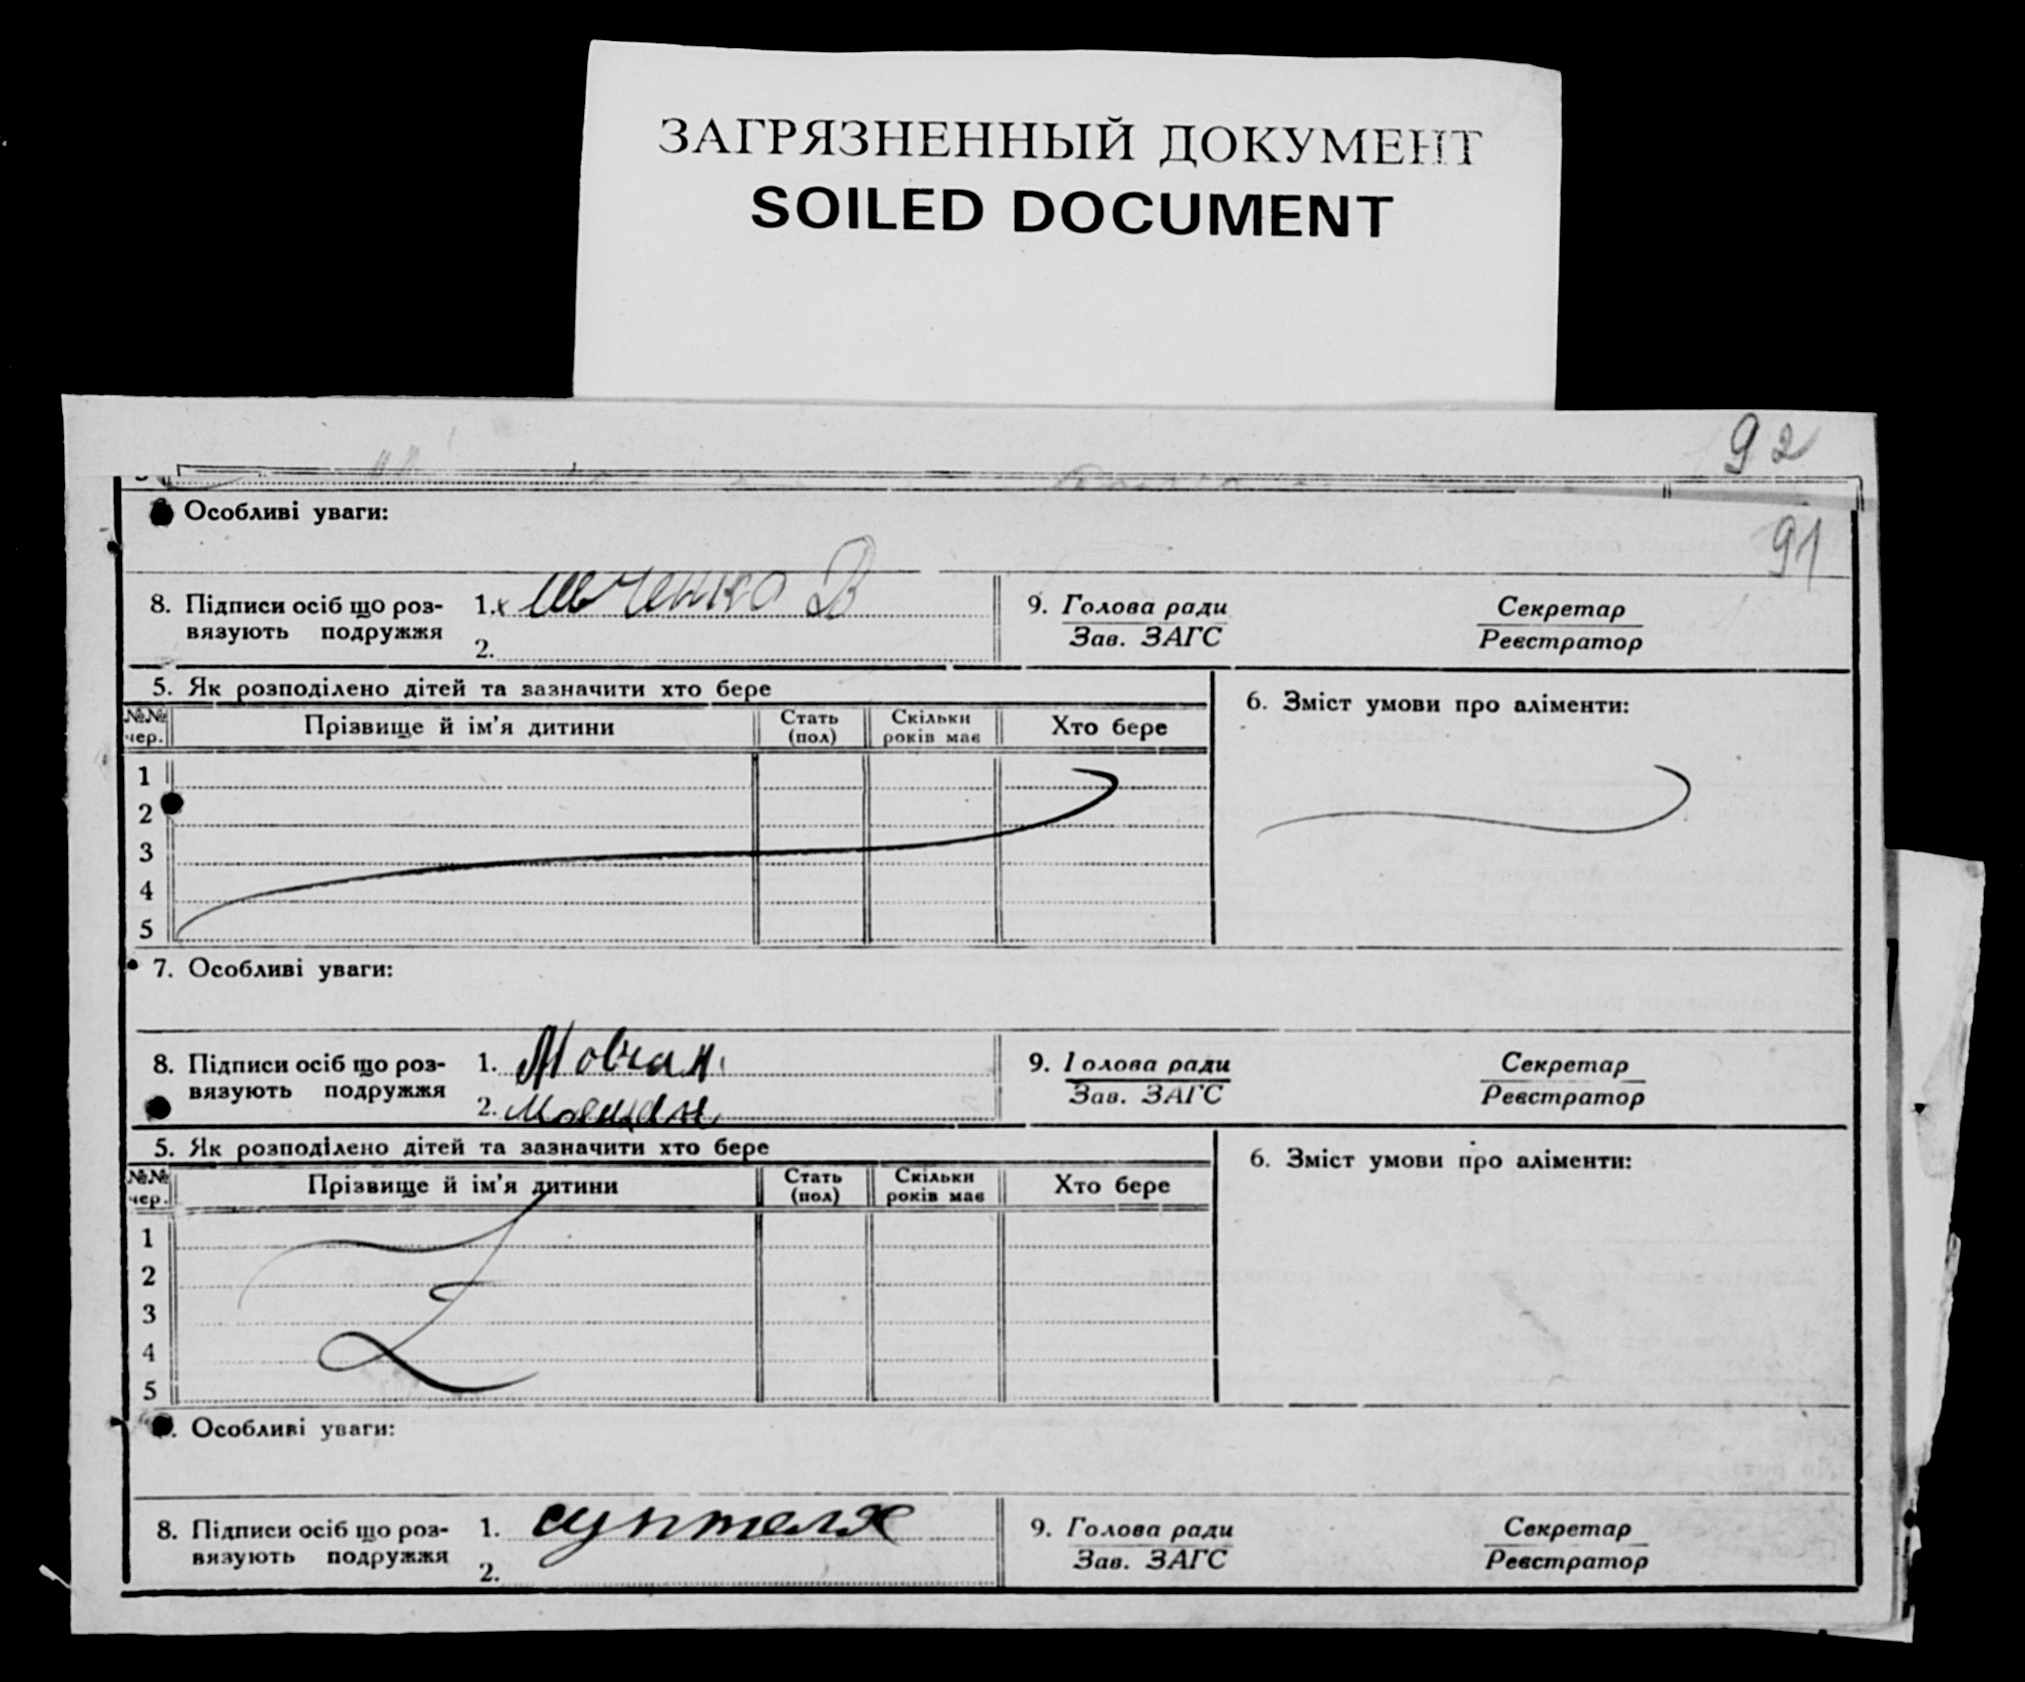 ЗАГРЯЗНЕННЫЙ ДОКУМЕНТ
SOILED DOCUMENT
92
91
Особливі уваги:
8. Підписи осіб що роз-
вязують подружжя
1.
2.
9. Голова ради
Зав. ЗАГС
Секретар
Реєстратор
5. Як розподілено дітей та зазначити хто бере
6. Зміст умови про аліменти:
№№ чер.
Прізвище й ім'я дитини
Стать (пол)
Скільки років має
Хто бере
1
2
3
4
5
7. Особливі уваги:
8. Підписи осіб що роз-
вязують подружжя
1. Мовчан
2.
9. Голова ради
Зав. ЗАГС
Секретар
Реєстратор
5. Як розподілено дітей та зазначити хто бере
6. Зміст умови про аліменти:
№№ чер.
Прізвище й ім'я дитини
Стать (пол)
Скільки років має
Хто бере
1
2
3
4
5
Особливі уваги:
8. Підписи осіб що роз-
вязують подружжя
1.
2.
9. Голова ради
Зав. ЗАГС
Секретар
Реєстратор